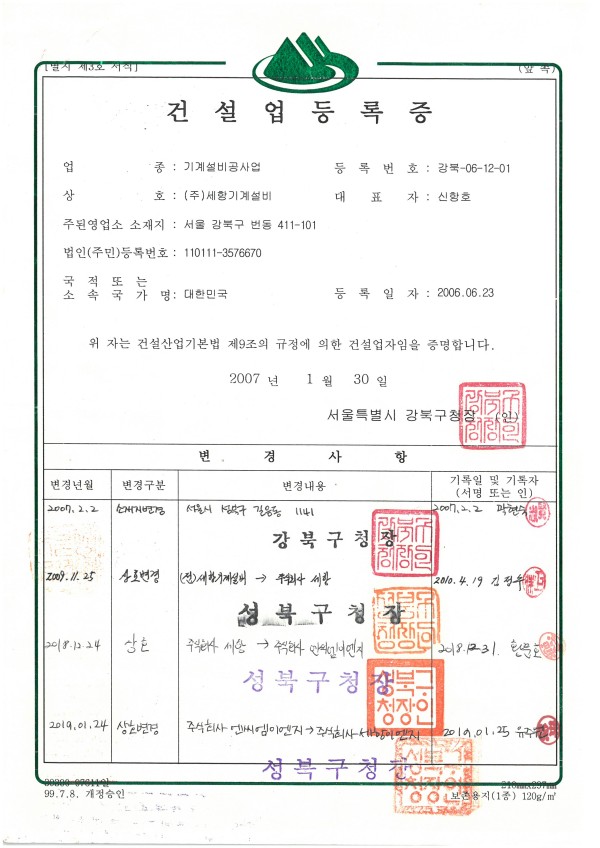 [별지 제3호 서식]
(앞 쪽)
건 설 업 등 록 증
업 종 : 기계설비공사업
등 록 번 호 : 강북-06-12-01
상 호 : (주)세항기계설비
대 표 자 : 신항호
주된영업소 소재지 : 서울 강북구 번동 411-101
법인(주민)등록번호 : 110111-3576670
국 적 또 는
소 속 국 가 명 : 대한민국
등 록 일 자 : 2006.06.23
위 자는 건설산업기본법 제9조의 규정에 의한 건설업자임을 증명합니다.
2007 년 1 월 30 일
서울특별시 강북구청장 (인)
변 경 사 항
변경년월 변경구분 변경내용 기록일 및 기록자
(서명 또는 인)
2007.2.2 소재지변경 서울시 성북구 길음동 1141 2007.2.2
강북구청장
2009.11.25 상호변경 (전)세항기계설비 → 주식회사 세항 2010.4.19 김정수
성북구청장
2018.12.24 상호 주식회사 세항 → 주식회사 2018.12.31.
성북구청장
2019.01.24 상호변경 주식회사 엔씨엠이엔지 → 주식회사 세항이엔지 2019.01.25
성북구청장
99.7.8. 개정승인
210mm×297mm
보존용지(1종) 120g/㎡